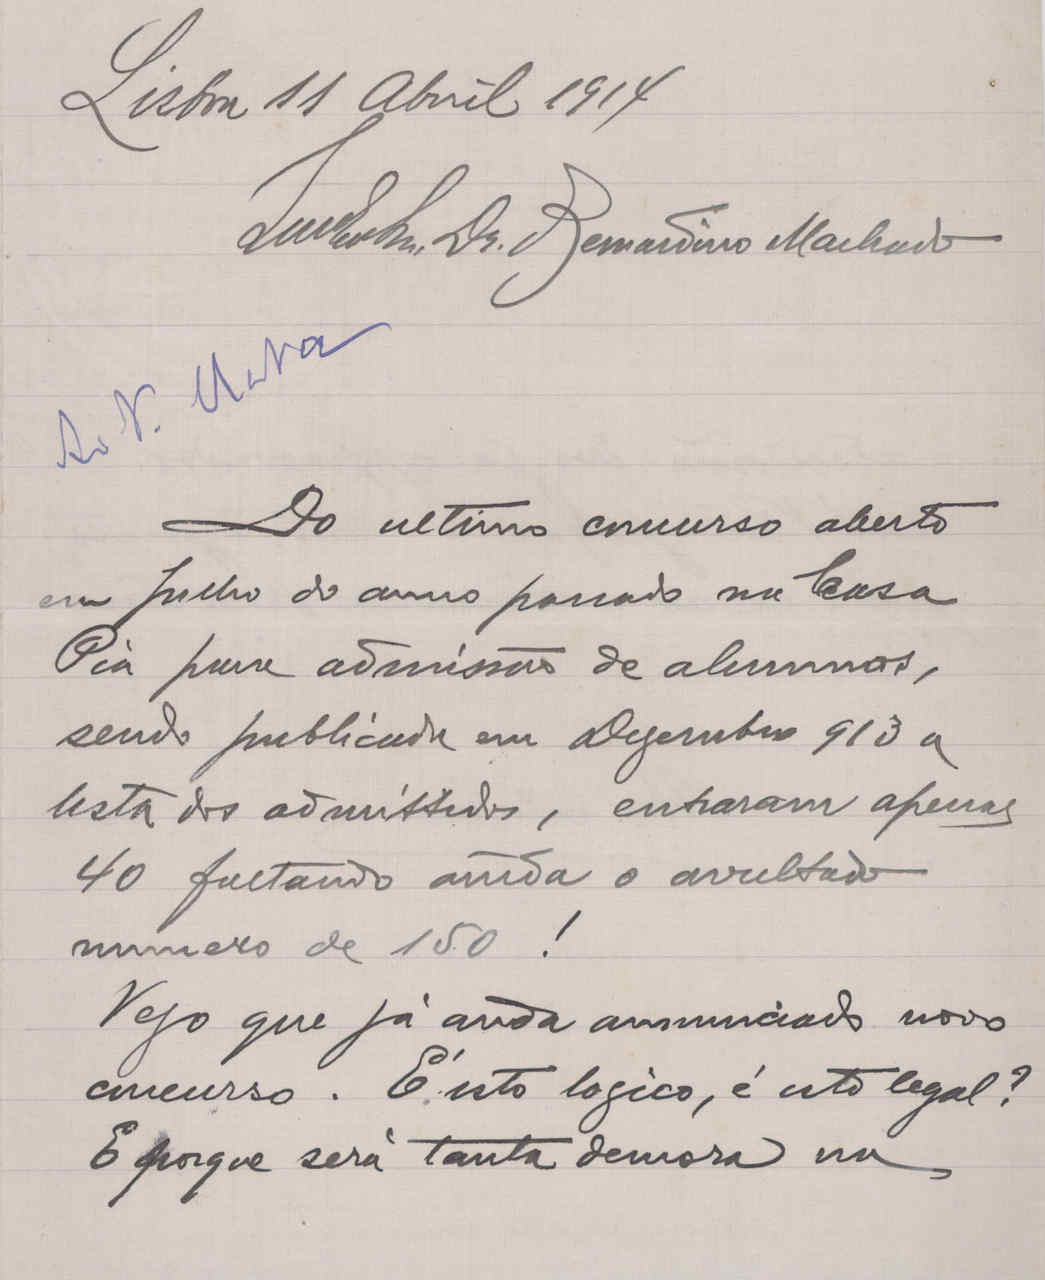 Lisboa 11 Abril 1914
Dr. Bernardino Machado
Do ultimo concurso aberto
em Julho do anno passado na Casa
Pia para admissão de alumnos,
sendo publicada em Dezembro 913 a
lista dos admittidos, entraram apenas
40 faltando ainda o avultado
numero de 150 !
Vejo que já anda annunciado novo
concurso. É isto logico, é isto legal?
E porque será tanta demora na